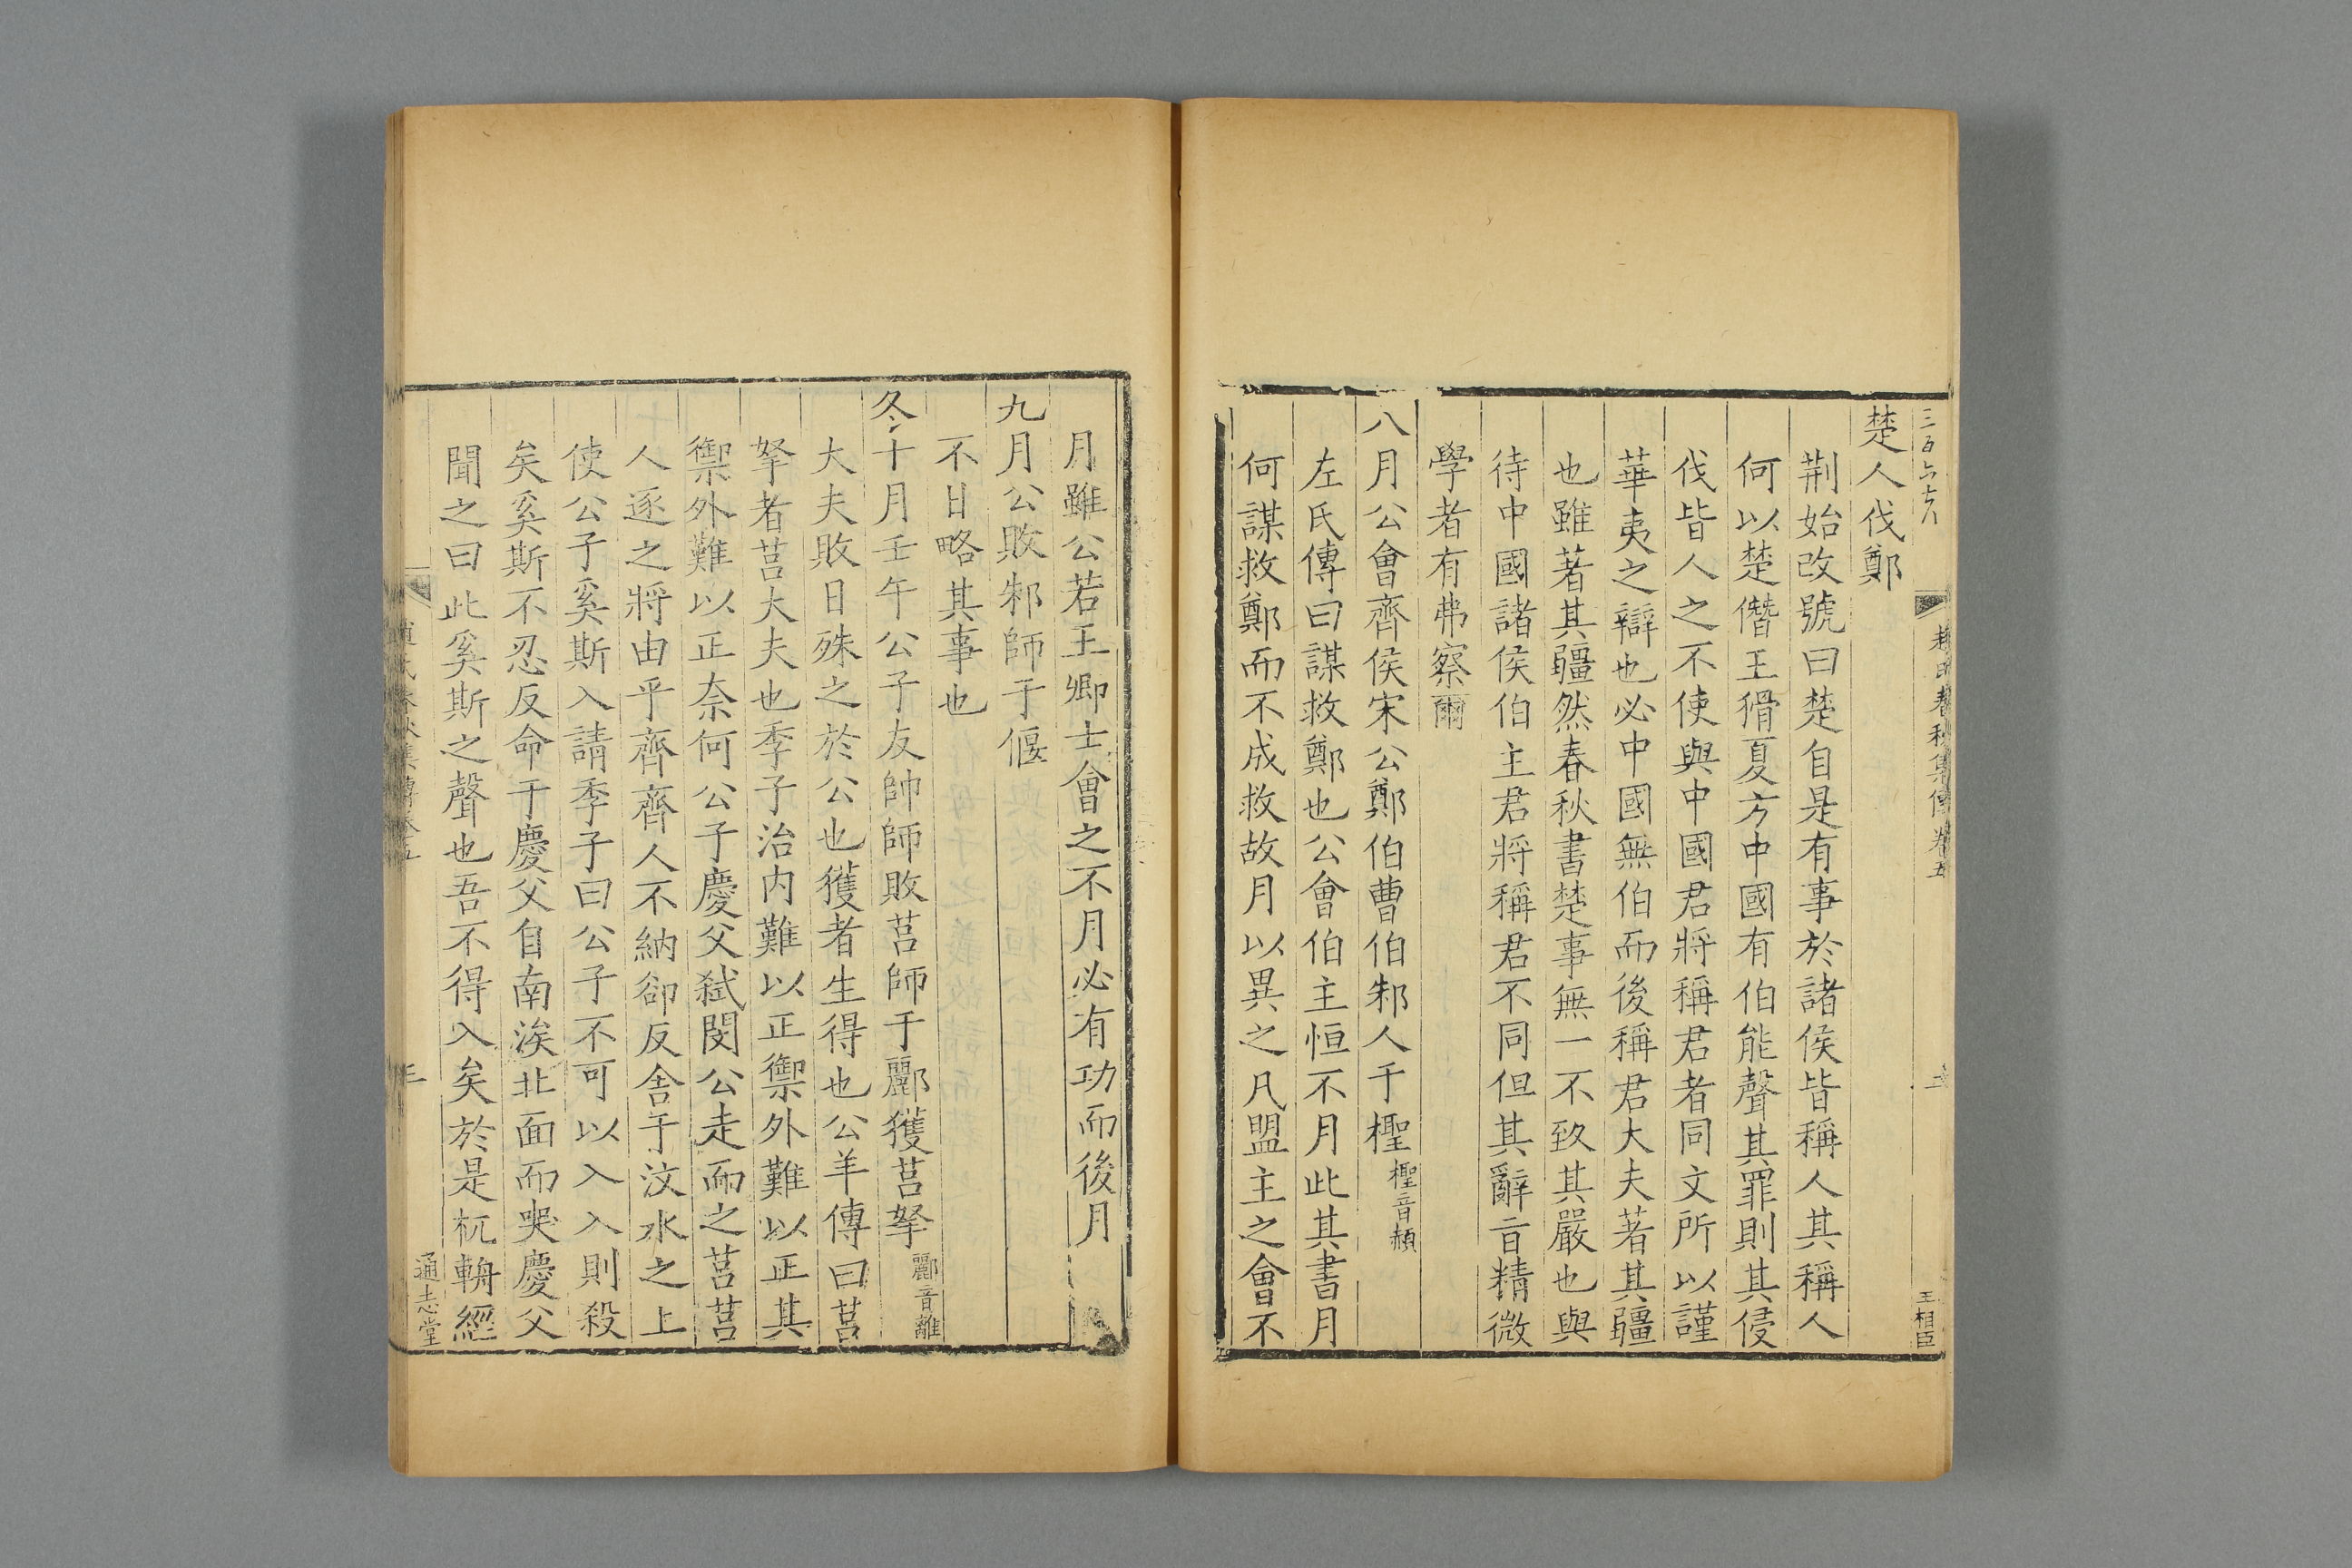 楚人伐鄭
荆始改號曰楚自是有事於諸侯皆稱人其稱人
何以楚僭王猾夏方中國有伯能聲其罪則其侵
伐皆人之不使與中國君將稱君者同文所以謹
華夷之辯也必中國無伯而後稱君大夫著其疆
也雖著其疆然春秋書楚事無一不致其嚴也與
待中國諸侯伯主君將稱君不同但其辭㫖精微
學者有弗察爾
八月公會齊侯宋公鄭伯曹伯邾人于檉檉音赬
左氏傳曰謀救鄭也公會伯主恒不月此其書月
何謀救鄭而不成救故月以異之凡盟主之會不
月雖公若王卿士會之不月必有功而後月
九月公敗邾師于偃
不日略其事也
冬十月壬午公子友帥師敗莒師于酈獲莒拏酈音離
大夫敗日殊之於公也獲者生得也公羊傳曰莒
拏者莒大夫也季子治内難以正禦外難以正其
禦外難以正奈何公子慶父弑閔公走而之莒莒
人逐之將由乎齊齊人不納卻反舍于汶水之上
使公子奚斯入請季子曰公子不可以入入則殺
矣奚斯不忍反命于慶父自南涘北面而哭慶父
聞之曰此奚斯之聲也吾不得入矣於是杭輈經
通志堂
王相臣